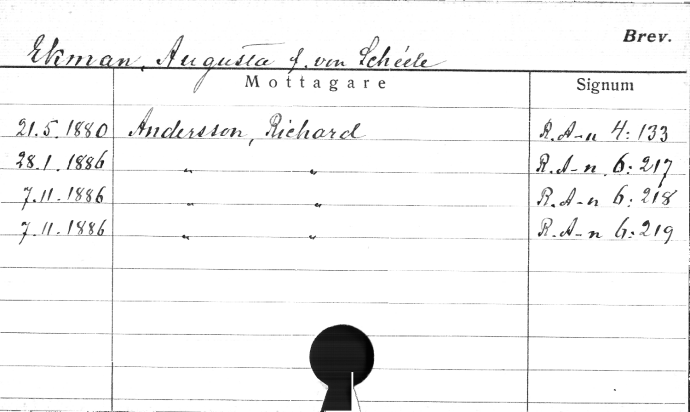 Brev.
Ekman, Augusta f. von Schéele
Mottagare Signum
21.5.1880 Andersson, Richard R.A-n 4:133
28.1.1886 " " R.A-n 6:217
7.11.1886 " " R.A-n 6:218
7.11.1886 " " R.A-n 6:219